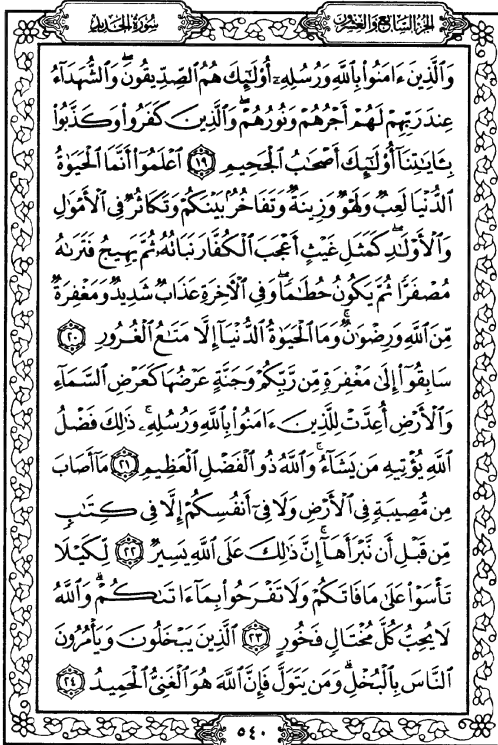 الجزء السابع والعشرون
سورة الحديد
وَالَّذِينَ ءَامَنُوا۟ بِٱللَّهِ وَرُسُلِهِۦٓ أُو۟لَٰٓئِكَ هُمُ ٱلصِّدِّيقُونَ ۖ وَٱلشُّهَدَآءُ
عِندَ رَبِّهِمْ لَهُمْ أَجْرُهُمْ وَنُورُهُمْ ۖ وَٱلَّذِينَ كَفَرُوا۟ وَكَذَّبُوا۟
بِـَٔايَٰتِنَآ أُو۟لَٰٓئِكَ أَصْحَٰبُ ٱلْجَحِيمِ ١٩ ٱعْلَمُوٓا۟ أَنَّمَا ٱلْحَيَوٰةُ
ٱلدُّنْيَا لَعِبٌ وَلَهْوٌ وَزِينَةٌ وَتَفَاخُرٌۢ بَيْنَكُمْ وَتَكَاثُرٌ فِى ٱلْأَمْوَٰلِ
وَٱلْأَوْلَٰدِ ۖ كَمَثَلِ غَيْثٍ أَعْجَبَ ٱلْكُفَّارَ نَبَاتُهُۥ ثُمَّ يَهِيجُ فَتَرَىٰهُ
مُصْفَرًّا ثُمَّ يَكُونُ حُطَٰمًا ۖ وَفِى ٱلْءَاخِرَةِ عَذَابٌ شَدِيدٌ وَمَغْفِرَةٌ
مِّنَ ٱللَّهِ وَرِضْوَٰنٌ ۚ وَمَا ٱلْحَيَوٰةُ ٱلدُّنْيَآ إِلَّا مَتَٰعُ ٱلْغُرُورِ ٢٠
سَابِقُوٓا۟ إِلَىٰ مَغْفِرَةٍ مِّن رَّبِّكُمْ وَجَنَّةٍ عَرْضُهَا كَعَرْضِ ٱلسَّمَآءِ
وَٱلْأَرْضِ أُعِدَّتْ لِلَّذِينَ ءَامَنُوا۟ بِٱللَّهِ وَرُسُلِهِۦ ۚ ذَٰلِكَ فَضْلُ
ٱللَّهِ يُؤْتِيهِ مَن يَشَآءُ ۚ وَٱللَّهُ ذُو ٱلْفَضْلِ ٱلْعَظِيمِ ٢١ مَآ أَصَابَ
مِن مُّصِيبَةٍ فِى ٱلْأَرْضِ وَلَا فِىٓ أَنفُسِكُمْ إِلَّا فِى كِتَٰبٍ
مِّن قَبْلِ أَن نَّبْرَأَهَآ ۚ إِنَّ ذَٰلِكَ عَلَى ٱللَّهِ يَسِيرٌ ٢٢ لِّكَيْلَا
تَأْسَوْا۟ عَلَىٰ مَا فَاتَكُمْ وَلَا تَفْرَحُوا۟ بِمَآ ءَاتَىٰكُمْ ۗ وَٱللَّهُ
لَا يُحِبُّ كُلَّ مُخْتَالٍ فَخُورٍ ٢٣ ٱلَّذِينَ يَبْخَلُونَ وَيَأْمُرُونَ
ٱلنَّاسَ بِٱلْبُخْلِ ۗ وَمَن يَتَوَلَّ فَإِنَّ ٱللَّهَ هُوَ ٱلْغَنِىُّ ٱلْحَمِيدُ ٢٤
٥٤٠